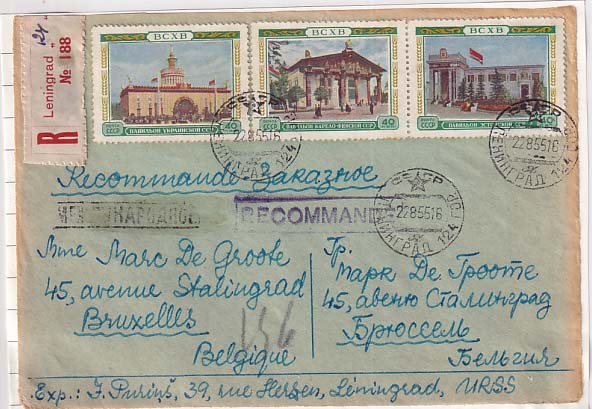 R
Leningrad „124”
№ 188
ВСХВ
ПАВИЛЬОН УКРАИНСКОЙ ССР
40
ВСХВ
ПАВИЛЬОН КАРЕЛО-ФИНСКОЙ ССР
40
ВСХВ
ПАВИЛЬОН ЭСТОНСКОЙ ССР
40
СССР
22 8 55 16
ЛЕНИНГРАД 124
СССР
22 8 55 16
ЛЕНИНГРАД 124
СССР
22 8 55 16
ЛЕНИНГРАД 124
Recommandé Заказное
МЕЖДУНАРОДНОЕ
RECOMMANDÉ
Mme Marc De Groote
45, avenue Stalingrad
Bruxelles
Belgique
Гр.
Марк Де Гроотe
45, авеню Сталинград
Брюссель
Бельгия
Exp.: J. Puriņš, 39, rue Herzen, Léningrad, URSS